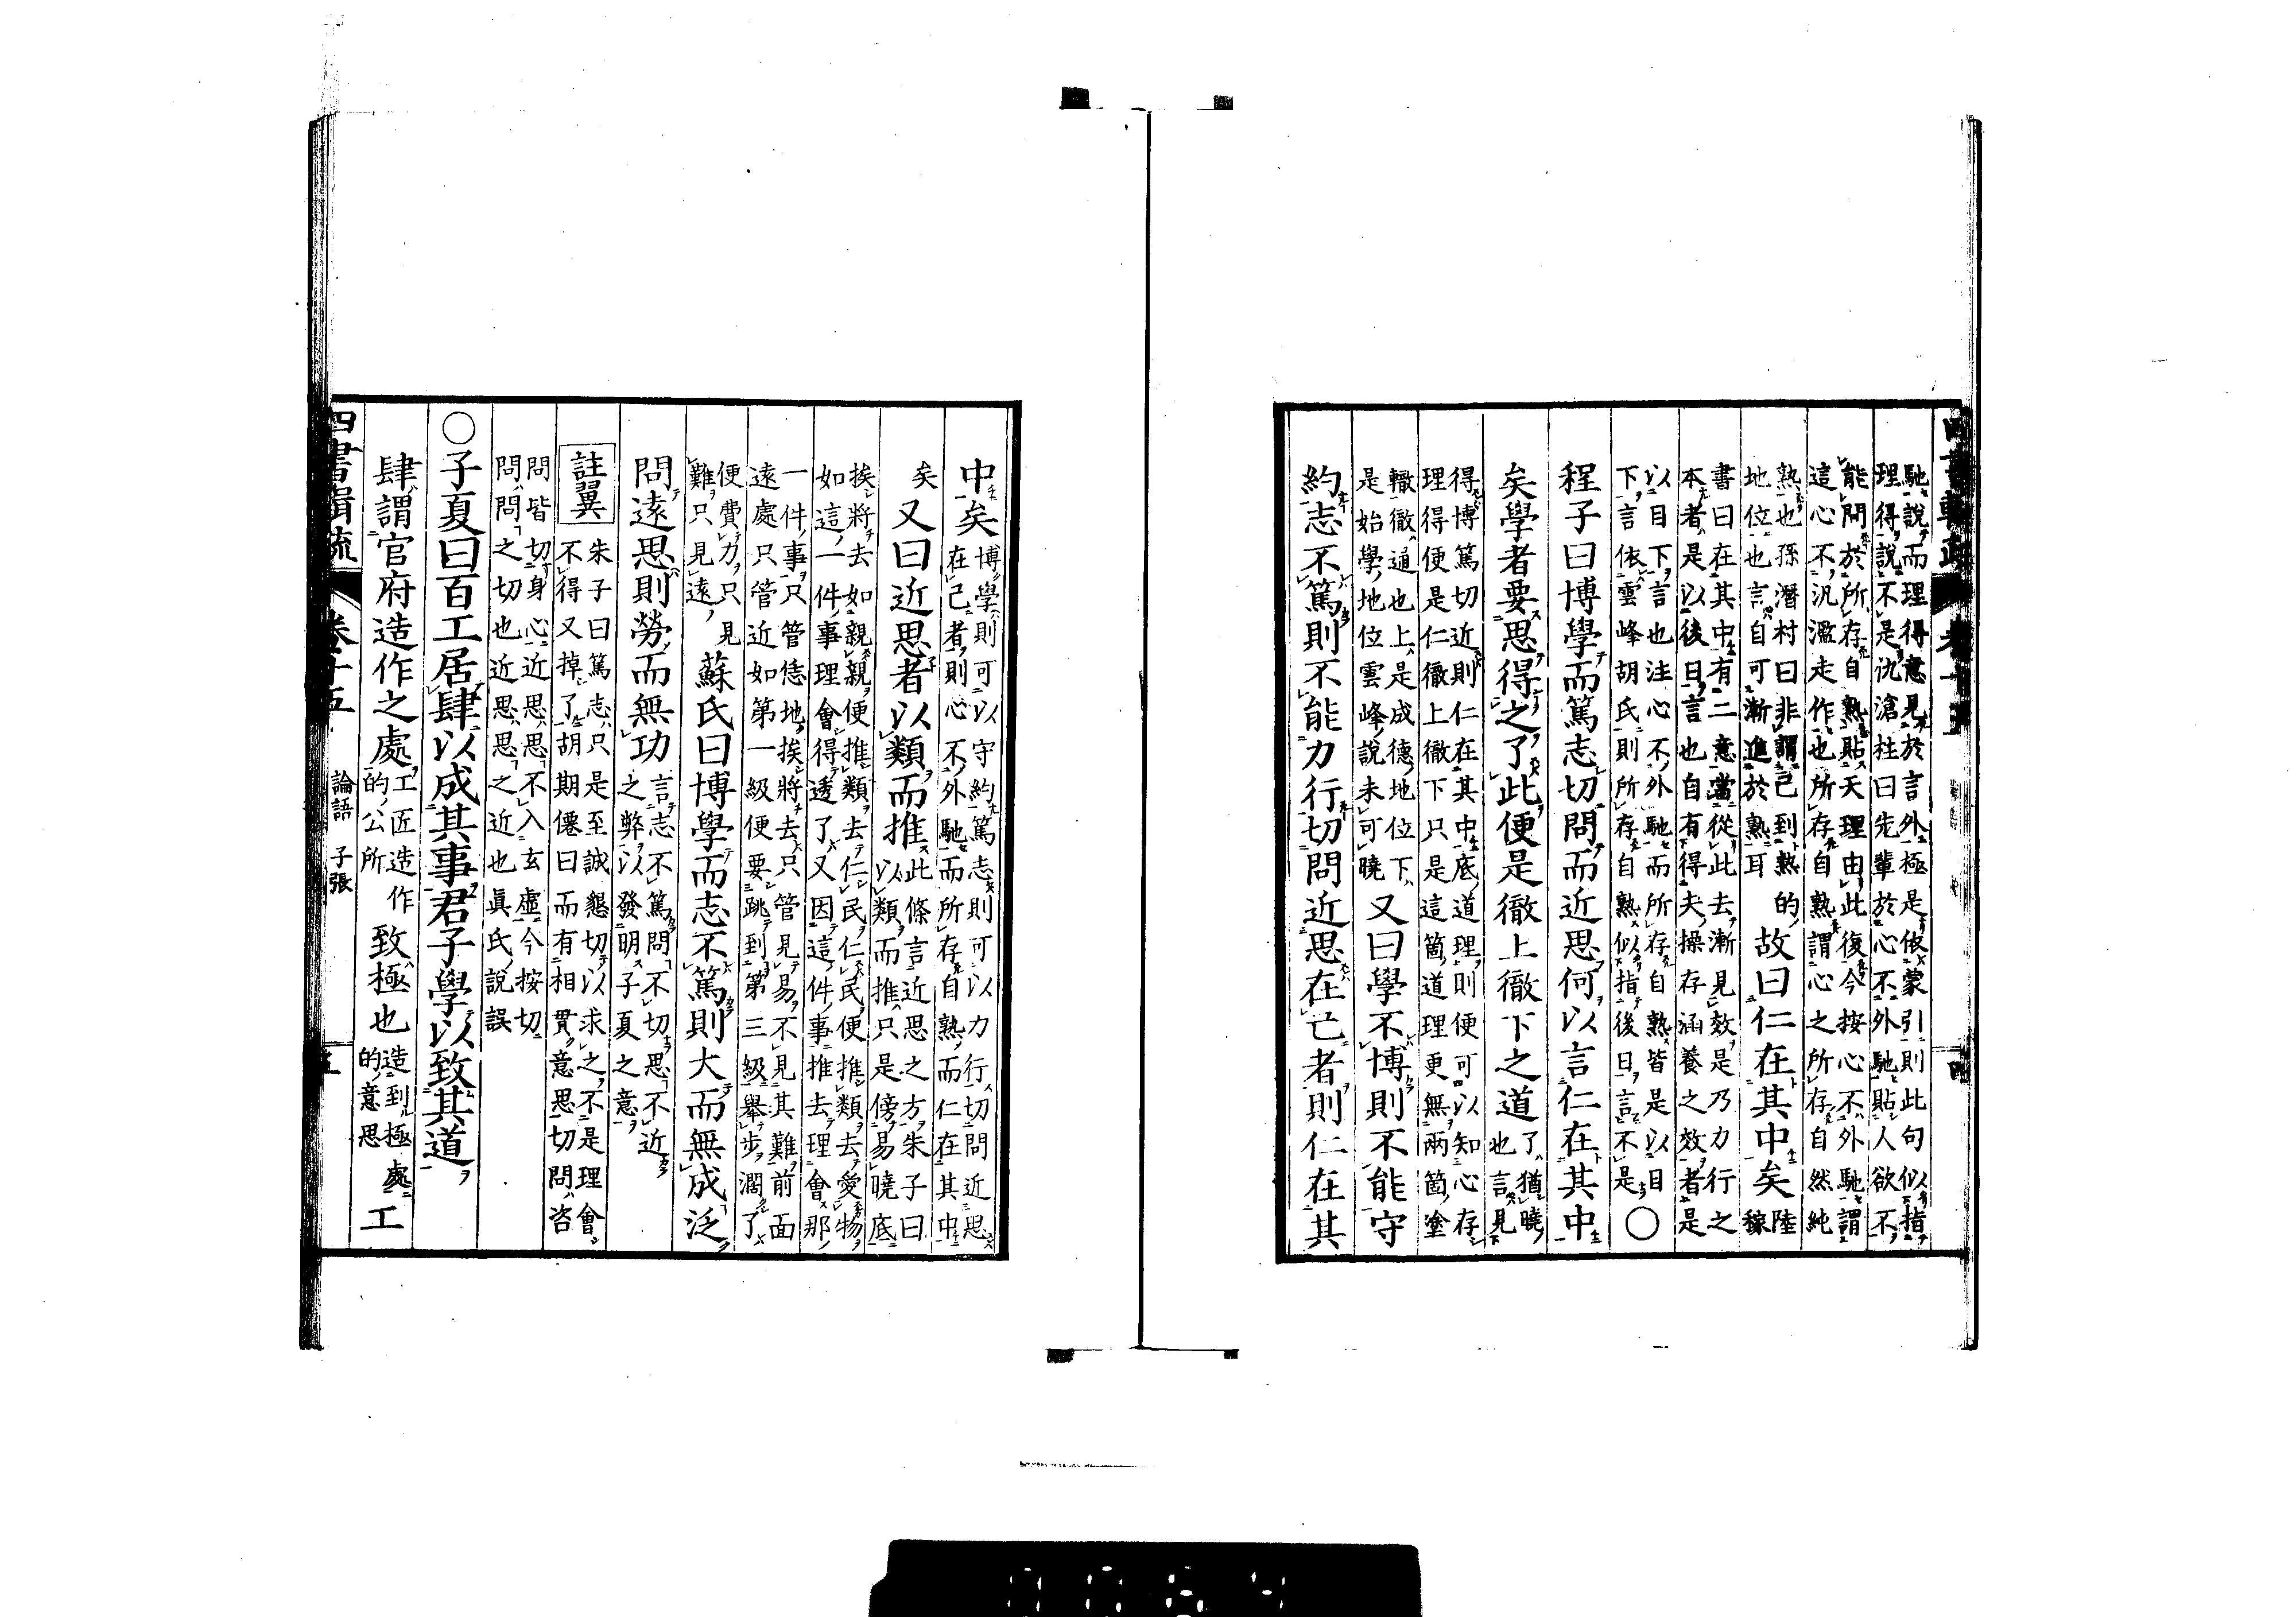 馳說而理得意見於言外極是依蒙引則此句似指
理得說不是仇滄柱曰先輩於心不外馳貼人欲不
能問於所存自熟貼天理由此復今按心不外馳謂
這心不汎濫走作也所存自熟謂心之所存自然純
熟也孫潛村曰非謂已到熟的
地位也言自可漸進於熟耳
故曰仁在其中矣
陸稼
書曰在其中有二意當從此去漸見效是乃力行之
本者是以後日言也自有得夫操存涵養之效者是
以目下言也注心不外馳而所存自熟皆是以目
下言依雲峰胡氏則所存自熟似指後日言不是
○
程子曰博學而篤志切問而近思何以言仁在其中
矣學者要思得之了此便是徹上徹下之道
了猶曉
也言見
得博篤切近則仁在其中底道理則便可以知心存
理得便是仁徹上徹下只是這箇道理更無兩箇塗
轍徹通也上是成德地位下
是始學地位雲峰說未可曉
又曰學不博則不能守
約志不篤則不能力行切問近思在己者則仁在其
四書輯疏
中矣
博學則可以守約篤志則可以力行切問近思
在己者則心不外馳而所存自熟而仁在其中
矣
又曰近思者以類而推
此條言近思之方朱子曰
以類而推只是傍易曉底
挨將去如親親便推類去仁民仁民便推類去愛物
如這一件事理會得透了又因這件事推去理會那
一件事只管恁地挨將去只管見易不見其難前面
遠處只管近如第一級便要跳到第三級舉步濶了
便費力只見
難只見遠
蘇氏曰博學而志不篤則大而無成泛
問遠思則勞而無功
言志不篤問不切思不近
之弊以發明子夏之意
註翼
朱子曰篤志只是至誠懇切以求之不是理會
不得又掉了胡期僊曰而有相貫意思切問咨
問皆切身心近思思不入玄虛今按切
問問之切也近思思之近也眞氏說誤
○子夏曰百工居肆以成其事君子學以致其道
肆謂官府造作之處
工匠造作
的公所
致極也
造到極處
的意思
工
四書輯疏
卷十五
論語
子張